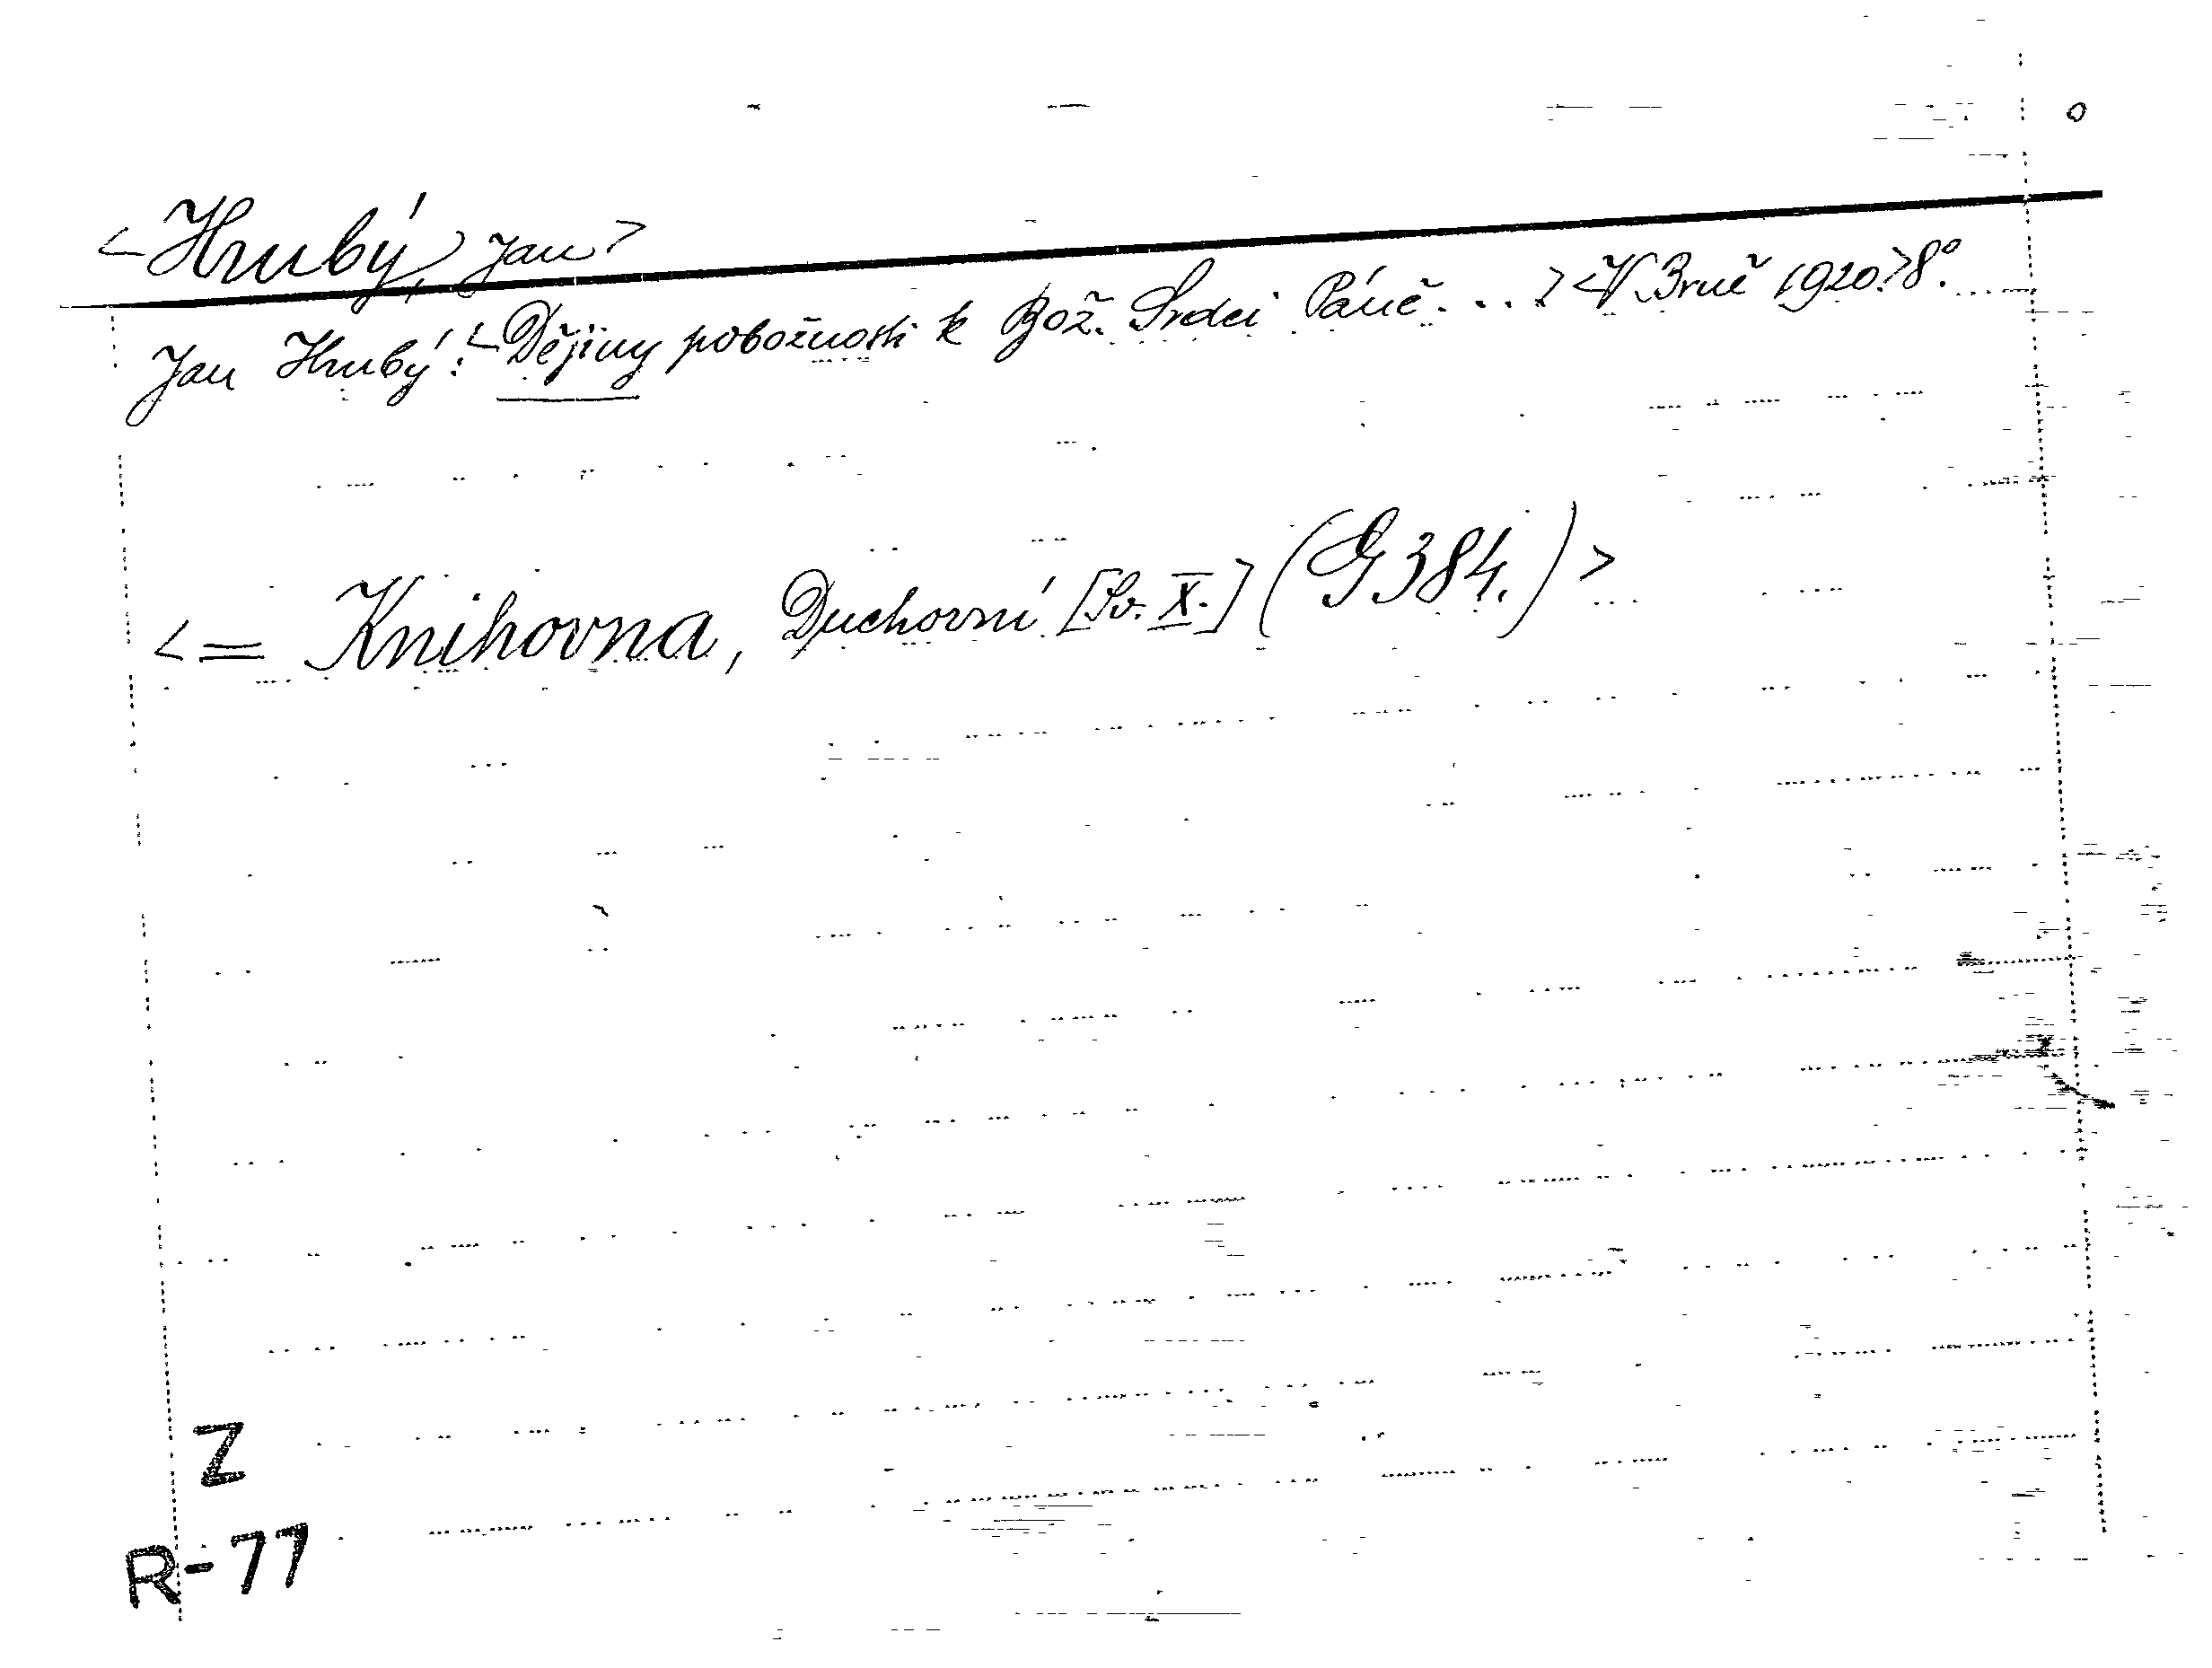 <Hrubý, Jan>
Jan Hrubý: <Dějiny pobožnosti k Bož. Srdci Páně...> <V Brně 1920.> 8°.
<= Knihovna, Duchovní [Sv. X.] (G 384.)>
Z
R-77